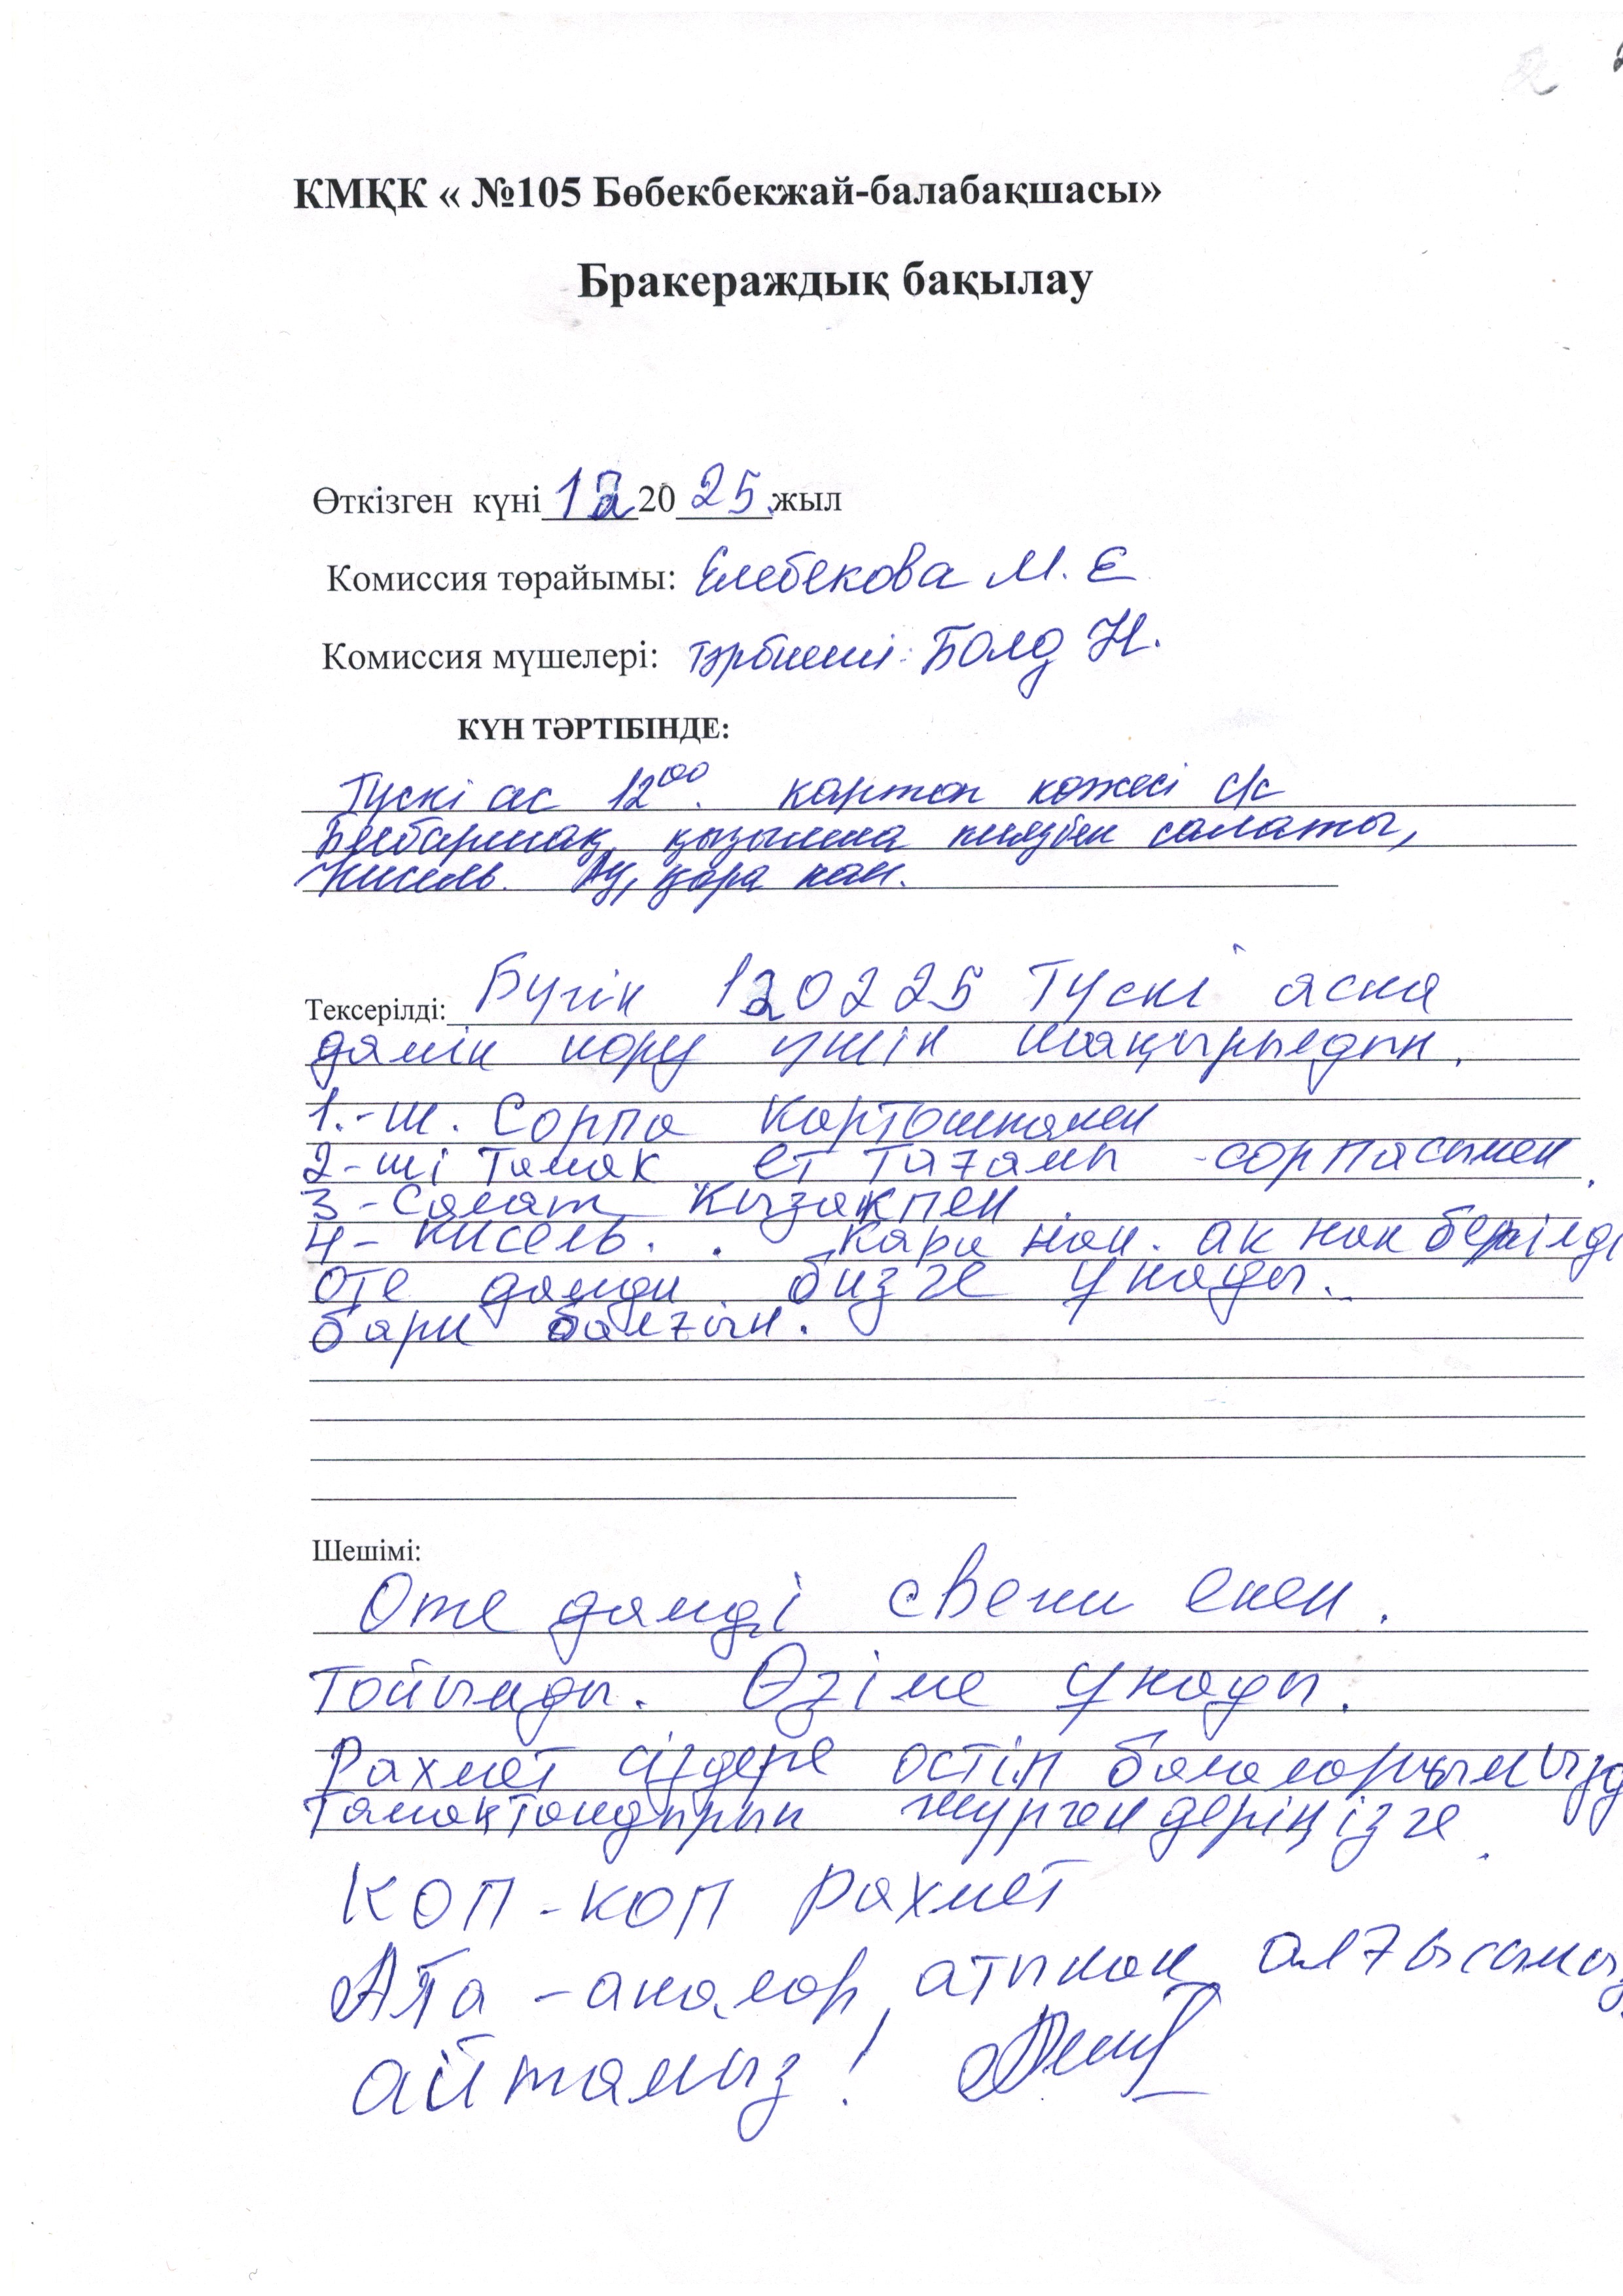 КМҚК « №105 Бөбекбекжай-балабақшасы»
Бракераждық бақылау
Өткізген күні 12 2025 жыл
Комиссия төрайымы: Елебекова М. Е
Комиссия мүшелері: тәрбиеші: Болд Н.
КҮН ТӘРТІБІНДЕ:
Түскі ас 12⁰⁰. картоп көжесі с/с
Бесбармақ, қызылша пиязбен салаты,
Кисель. Ақ, қара нан.
Тексерілді: Бүгін 120225 Түскі аска
дәмін көру үшін шақырылдын.
1.-ш. Сорпа Картошкамен
2-ші Тамак ет тағамы -сорпасымен.
3-Салат Кызакпен.
4- кисель. . Кара нан. ак нан берілді
Оте дамди бизге Унады.
бари балғын.
Шешімі:
Оте дамді свежи екен.
Тойымды. Өзіме Унады.
Рахмет сіздерге остіп балаларымызд
Тамақтандырып жүргендеріңізге.
Коп-коп рахмет
Ата-аналар атынан алғысымыз
айтамыз!